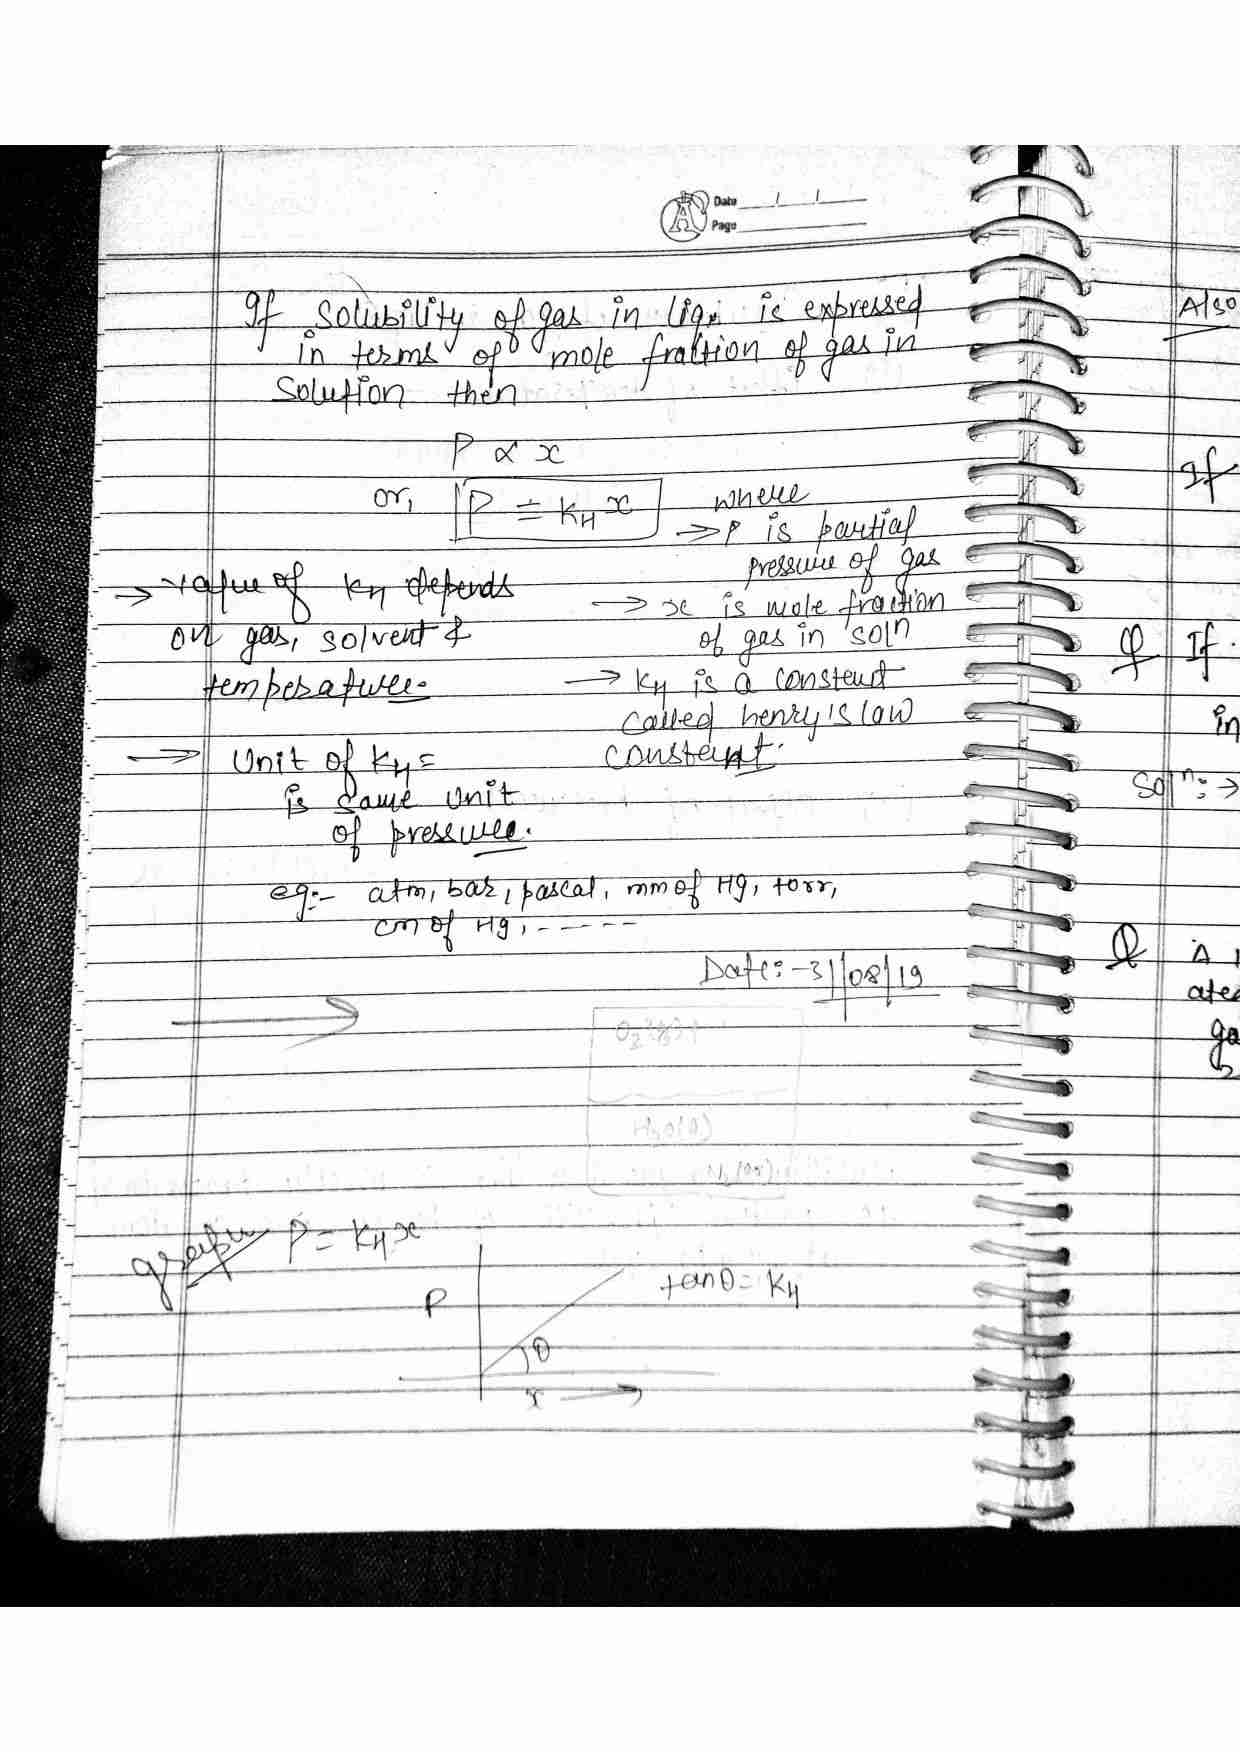 Date / /
Page
If solubility of gas in liq. is expressed
in terms of mole fraction of gas in
solution then
P ∝ x
or, P = KH x where
→ P is partial
pressure of gas
→ x is mole fraction
of gas in solⁿ
→ KH is a constant
called henry's law
constant.
→ value of KH depends
on gas, solvent &
temperature.
→ Unit of KH =
is same unit
of pressure.
eg:- atm, bar, pascal, mm of Hg, torr,
cm of Hg, -----
Date:-31/08/19
graph P = KH x
P
tanθ = KH
θ
x →
Also
If
Q If
in
Solⁿ: →
Q A
ated
ga